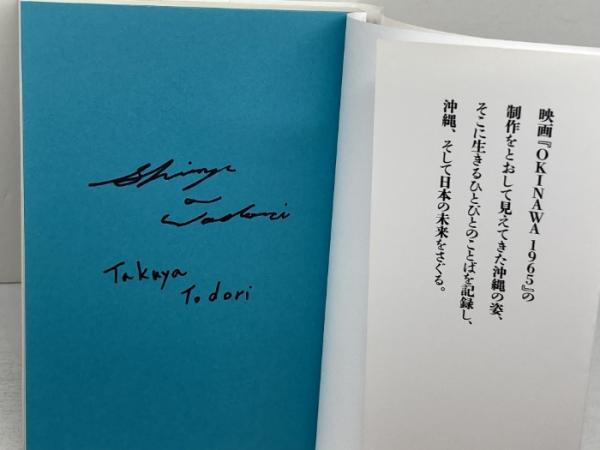 Shinya
Takuya
Todori
映画『OKINAWA 1965』の
制作をとおして見えてきた沖縄の姿、
そこに生きるひとびとのことばを記録し、
沖縄、そして日本の未来をさぐる。